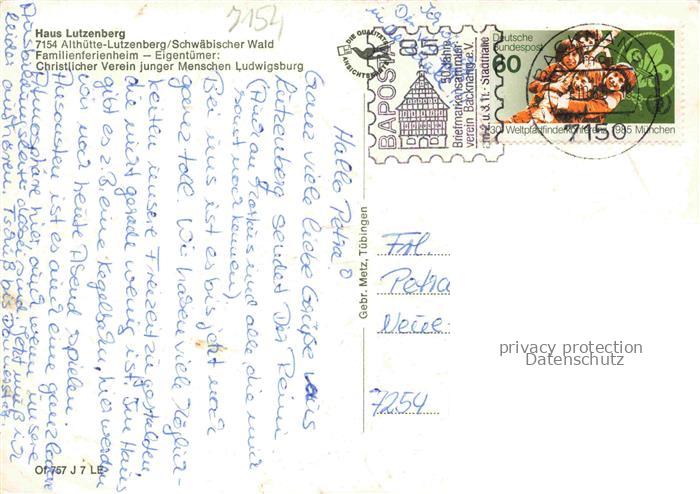 7154
Haus Lutzenberg
7154 Althütte-Lutzenberg/Schwäbischer Wald
Familienferienheim — Eigentümer:
Christlicher Verein junger Menschen Ludwigsburg
DIE QUALITÄTS
ANSICHTSKARTE
BAPOSTA 85
50 Jahre
Briefmarkensammler-
verein Backnang e.V.
Stadthalle
Deutsche
Bundespost
60
30. Weltpfadfinderkonferenz 1985 München
BACKNANG
7150
Hallo Petra!
Ganz viele liebe Grüße aus
Lutzenberg sendet Dir Reini
(Auch an Markus und alle, die mich
sonst noch kennen)
Bei uns ist es bis jetzt noch
ganz toll. Wir haben viele Möglich-
keiten, unsere Freizeit zu gestalten,
die nicht gerade wenig ist. Im Haus
gibt es z.B. eine Kegelbahn, hier werden
wir noch heute Abend spielen.
Ansonsten ist es auch eine ganz lockere
Atmosphäre hier, auch wenn unsere
dabei sind. Jetzt muß ich
leider aufhören. Tschüß bis Donnerstag.
Frl.
Petra
7254
Gebr. Metz, Tübingen
Of 757 J 7 LE
privacy protection
Datenschutz